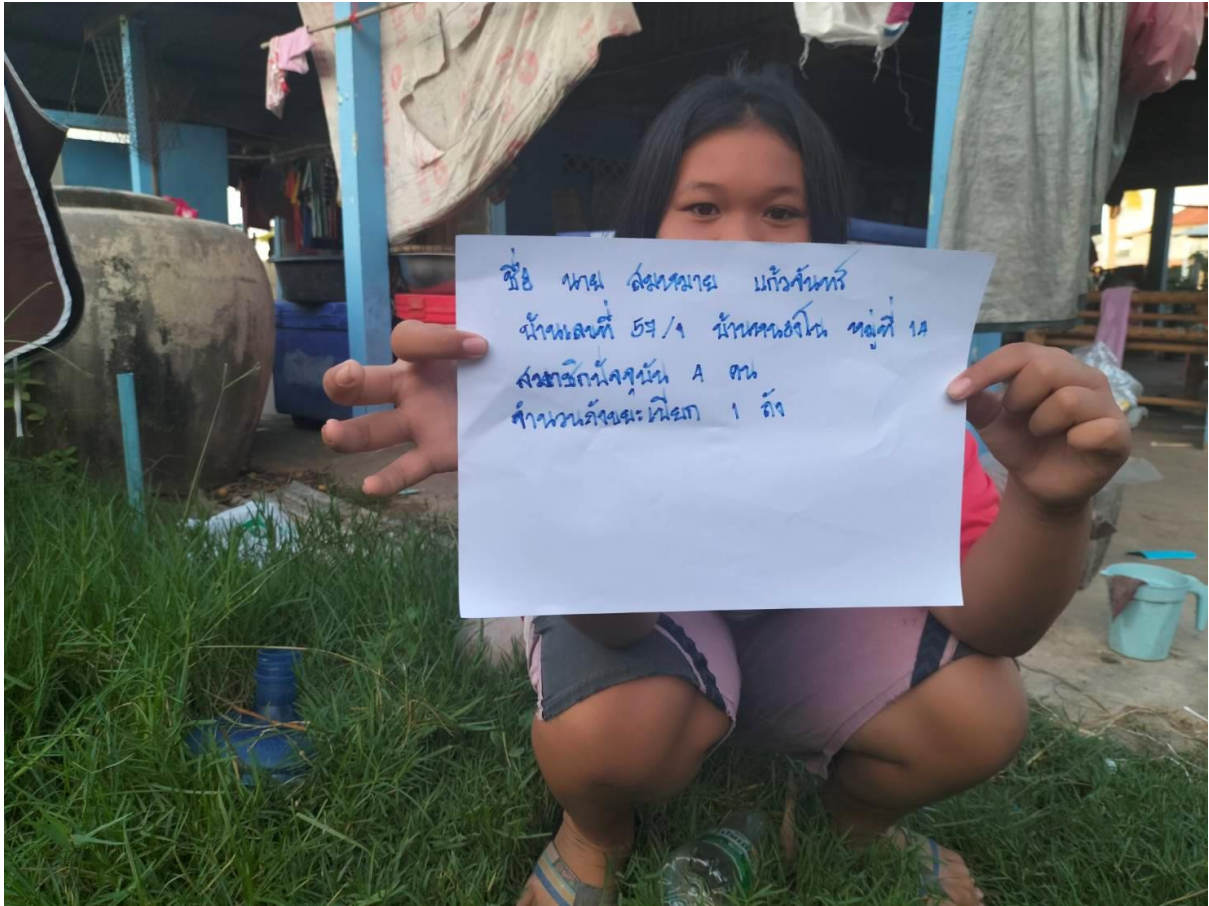 ชื่อ นาย สมหมาย แก้วจันทร์
บ้านเลขที่ 57/1 บ้านหนองโน หมู่ที่ 14
สมาชิกปัจจุบัน 4 คน
จำนวนถังขยะเปียก 1 ถัง